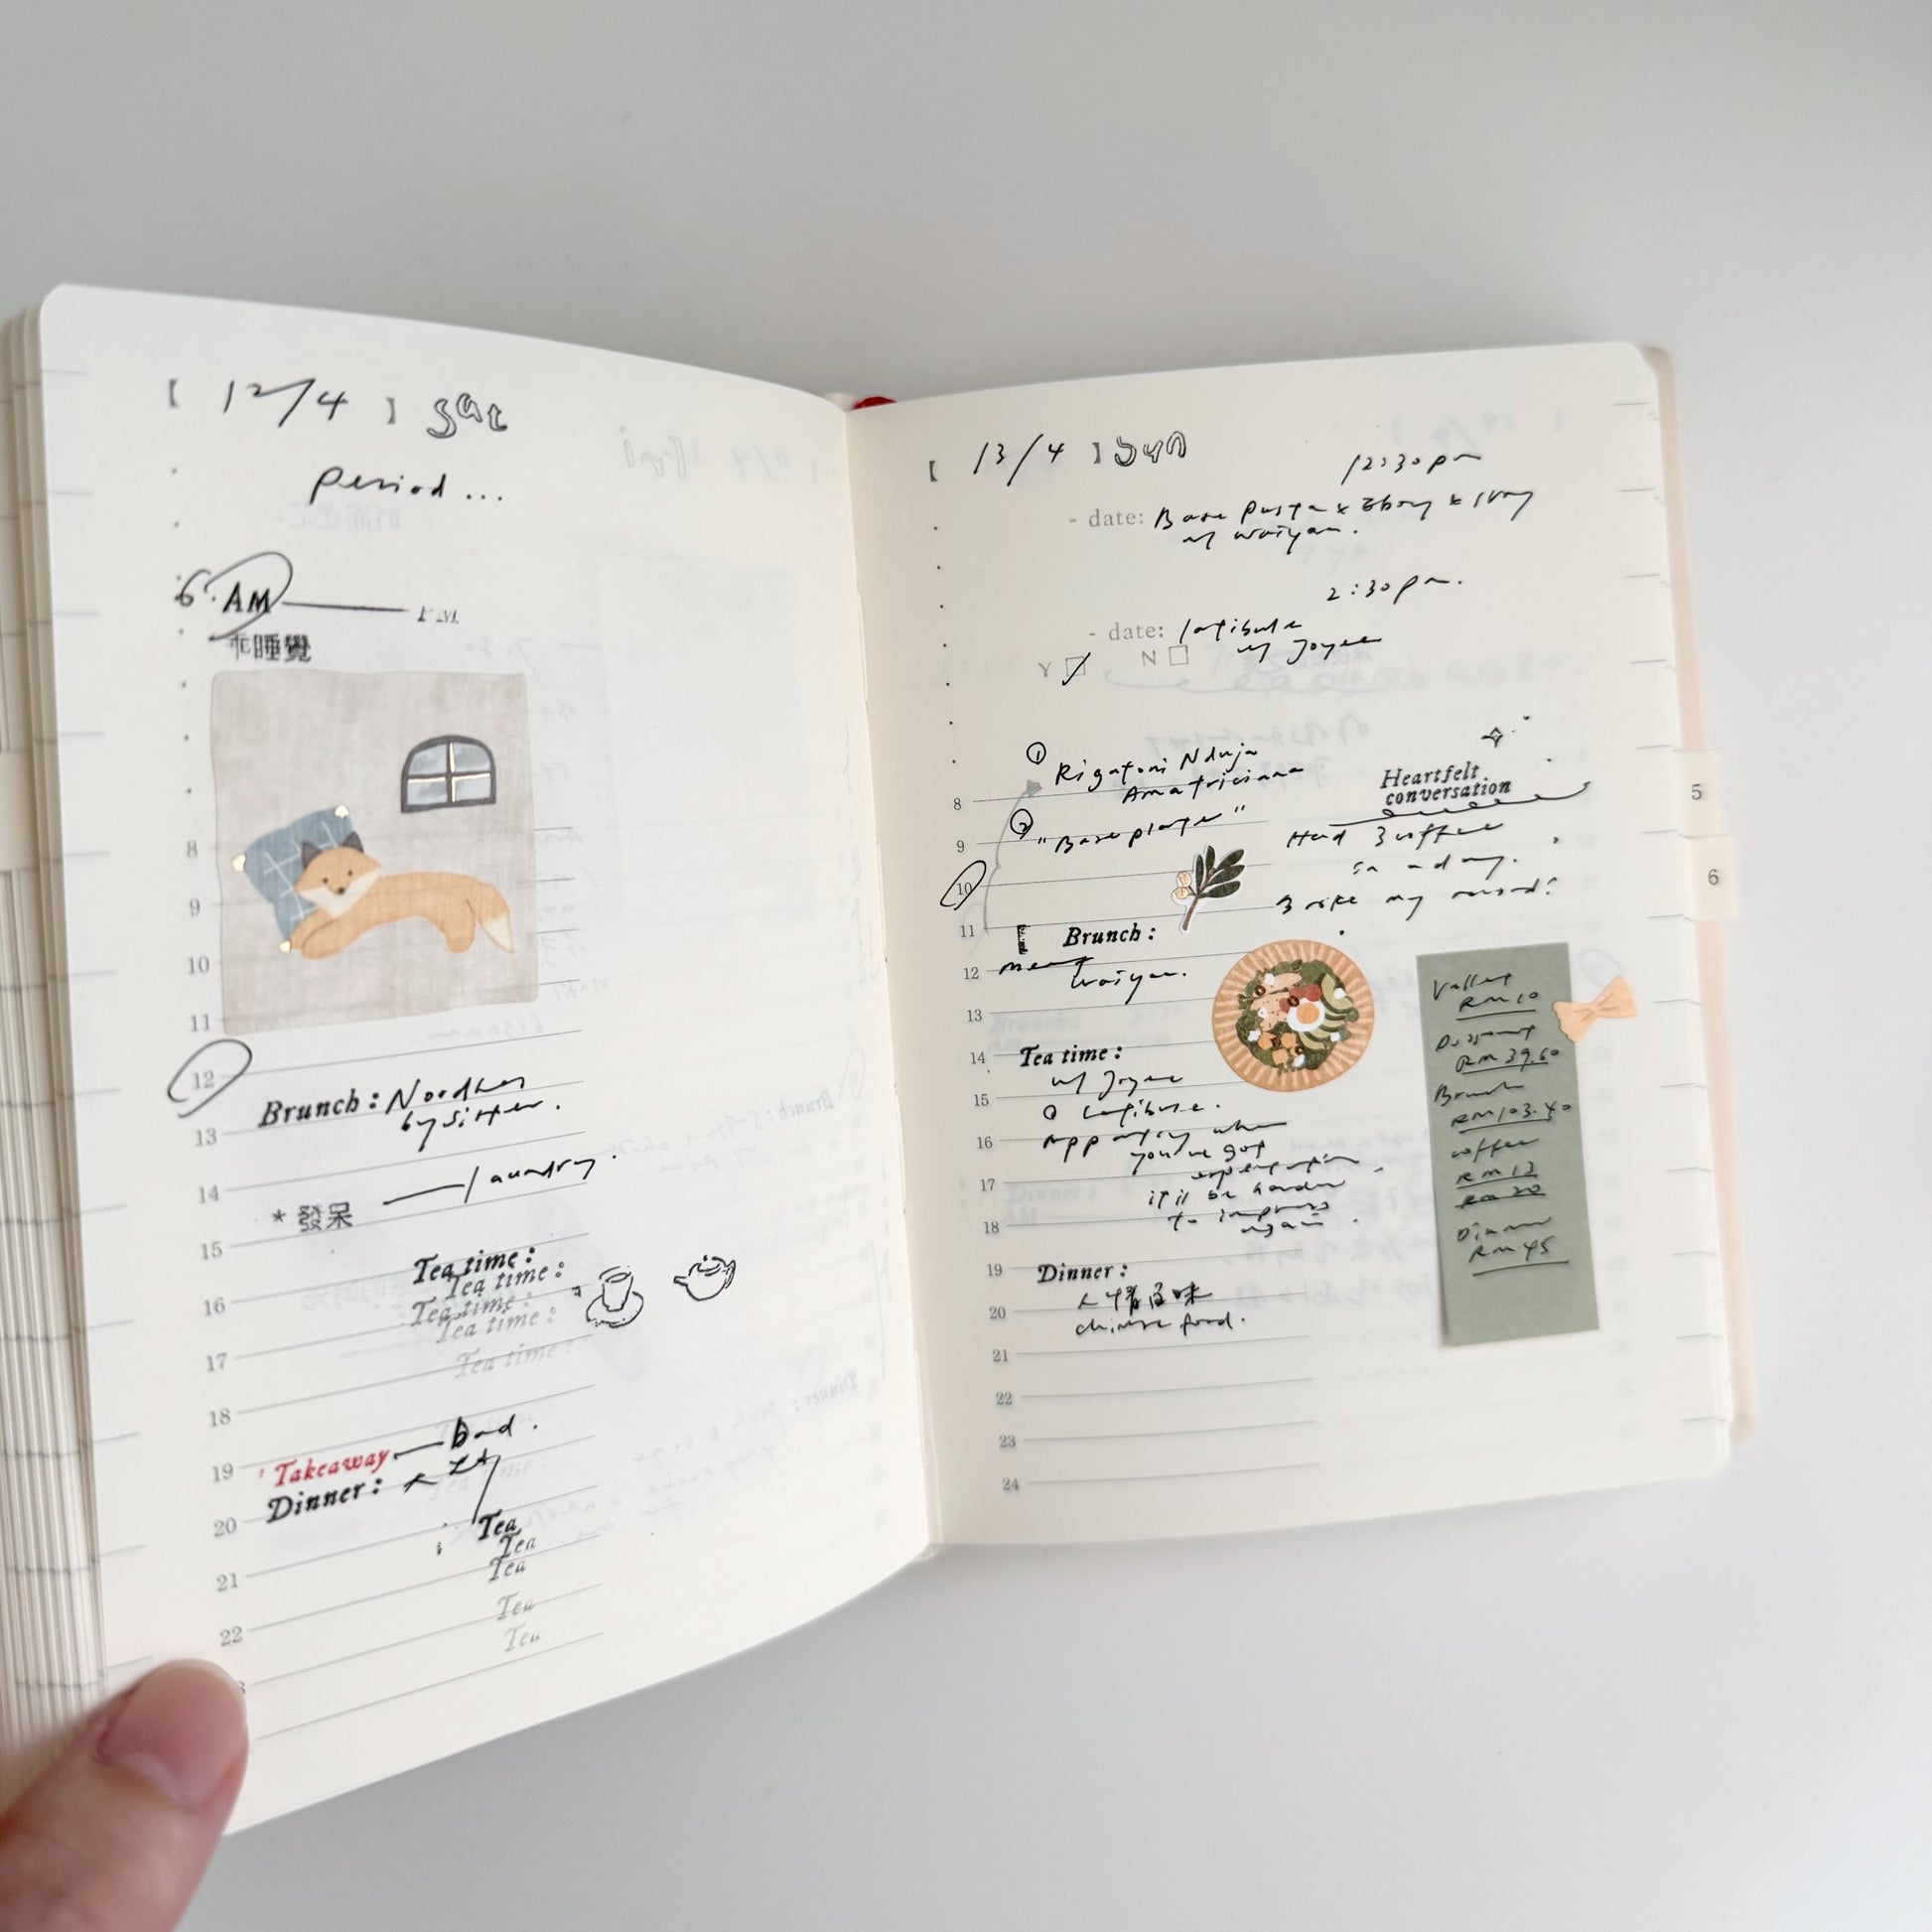 【 12/4 】 sat
period...
6. AM
P.M.
睡覺
8
9
10
11
12
13
14
15
16
17
18
19
20
21
22
Brunch: Noodles
by sister.
laundry.
* 發呆
Tea time:
Tea time:
Tea time:
Tea time:
Tea time:
Takeaway bad.
Dinner:
Tea
Tea
Tea
Tea
Tea
【 13/4 】 sun
12:30pm
- date: Base Pasta x Ebony & Ivory
w/ waiyan.
2:30pm.
- date: latibule
w/ Joyee
Y N
① Rigatoni Nduja
Amatriciana
② "Base plate"
Heartfelt
conversation
Had 3 coffee
in a day.
my record!
8
9
10
11
12
13
14
15
16
17
18
19
20
21
22
23
24
Brunch:
meet
waiyan.
Tea time:
w/ Joyee
@ Latibule.
when
you've got
expectation,
it'll be harder
to impress
again.
Dinner:
人情味
chinese food.
Valley
RM10
Dessert
RM39.60
Brunch
RM103.40
coffee
RM12
RM20
Dinner
RM45
5
6